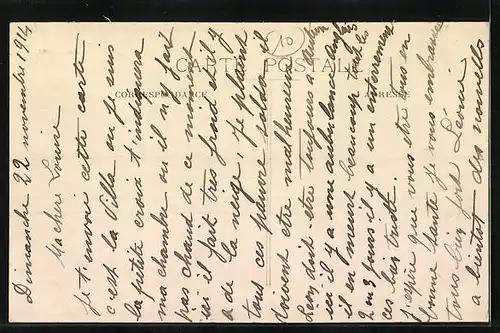 Dimanche 22 novembre 1914
Ma chère Louise
Je t'envoie cette carte
c'est la Villa ou je suis
la petite croix t'indiquera
ma chambre ou il ny fait
pas chaud de ce moment
ici il fait tres froid et il y
a de la neige, Je plaint
tous ces pauvre soldat il
doivent etre malheureux
L'on doit-etre toujours a
ici il y a une ambulance
il en meurt beaucoup tout les
2 ou 3 jours il y a un enterrement
ces bien triste.
J'espère que vous ete tous en
bonne sante je vous embrasse
tous bien fort Léonie
a bientot des nouvelles
CARTE POSTALE
CORRESPONDANCE
ADRESSE
10